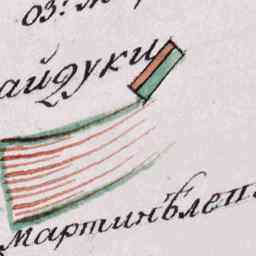 оз: м
айдуки
мартинѣлеп